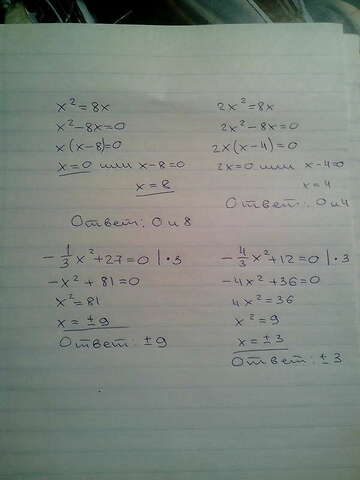 x² = 8x
x² - 8x = 0
x(x-8) = 0
x = 0 или x - 8 = 0
x = 8
Ответ: 0 и 8
2x² = 8x
2x² - 8x = 0
2x(x-4) = 0
2x = 0 или x - 4 = 0
x = 4
Ответ: 0 и 4
-1/3 x² + 27 = 0 | · 3
-x² + 81 = 0
x² = 81
x = ± 9
Ответ: ± 9
-4/3 x² + 12 = 0 | · 3
-4x² + 36 = 0
4x² = 36
x² = 9
x = ± 3
Ответ: ± 3